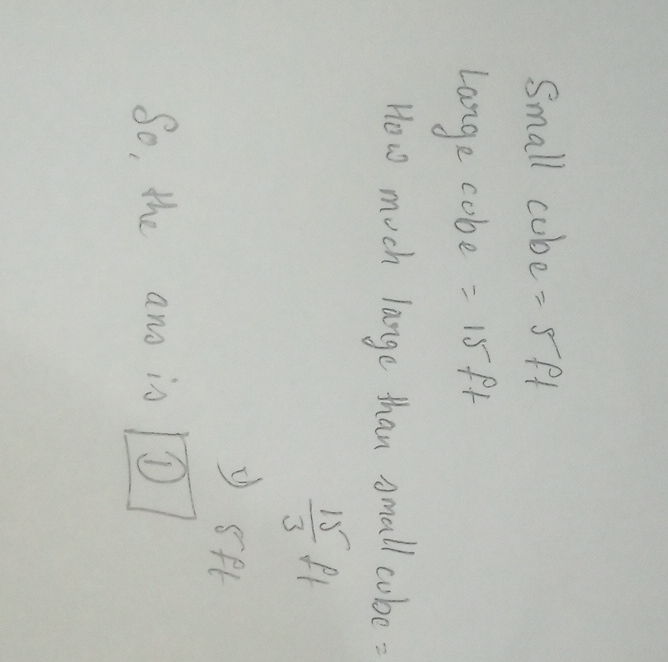 Small cube = 5 ft
Large cube = 15 ft
How much large than small cube =
15/3 ft
⇒ 5 ft
So, the ans is D